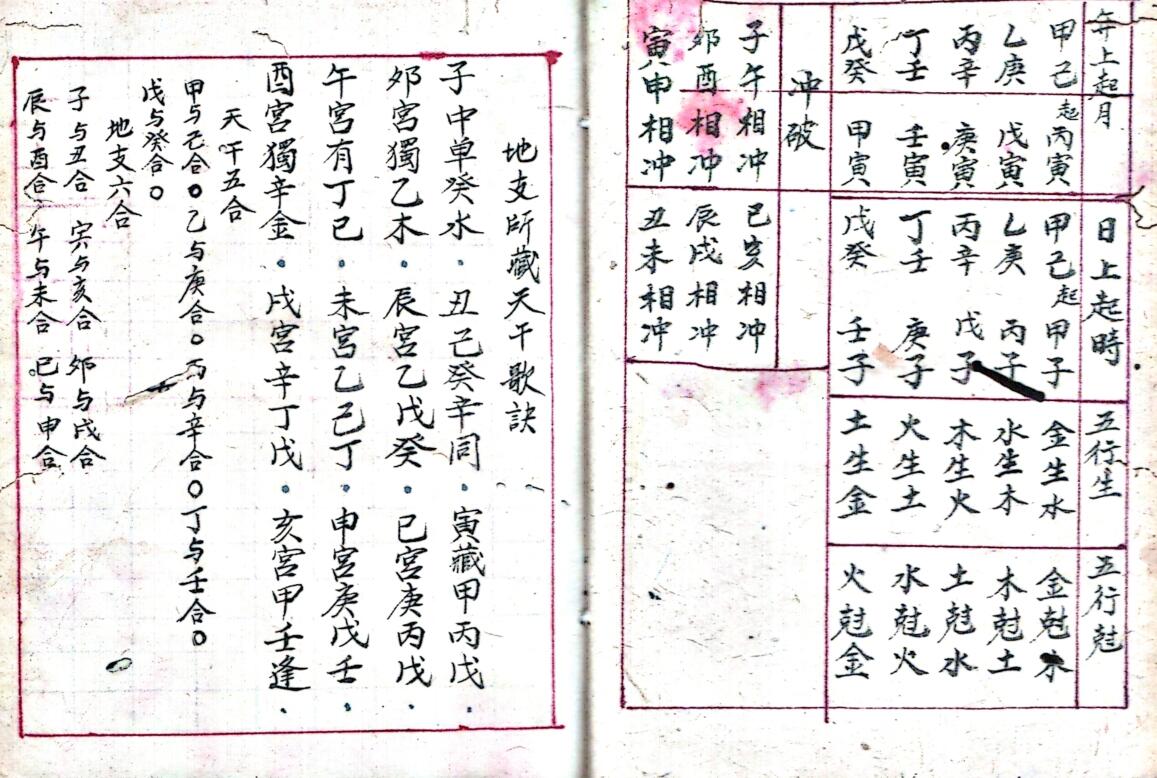 年上起月
甲己起丙寅
乙庚 戊寅
丙辛 庚寅
丁壬 壬寅
戊癸 甲寅
日上起時
甲己起甲子
乙庚 丙子
丙辛 戊子
丁壬 庚子
戊癸 壬子
五行生
金生水
水生木
木生火
火生土
土生金
五行尅
金尅木
木尅土
土尅水
水尅火
火尅金
冲破
子午相冲 巳亥相冲
卯酉相冲 辰戌相冲
寅申相冲 丑未相冲
地支所藏天干歌訣
子中单癸水·丑己癸辛同·寅藏甲丙戊·
卯宮獨乙木·辰宮乙戊癸·巳宮庚丙戊·
午宮有丁己·未宮乙己丁·申宮庚戊壬·
酉宮獨辛金·戌宮辛丁戊·亥宮甲壬逢·
天干五合
甲与己合○乙与庚合○丙与辛合○丁与壬合○
戊与癸合○
地支六合
子与丑合 寅与亥合 卯与戌合
辰与酉合 午与未合 巳与申合